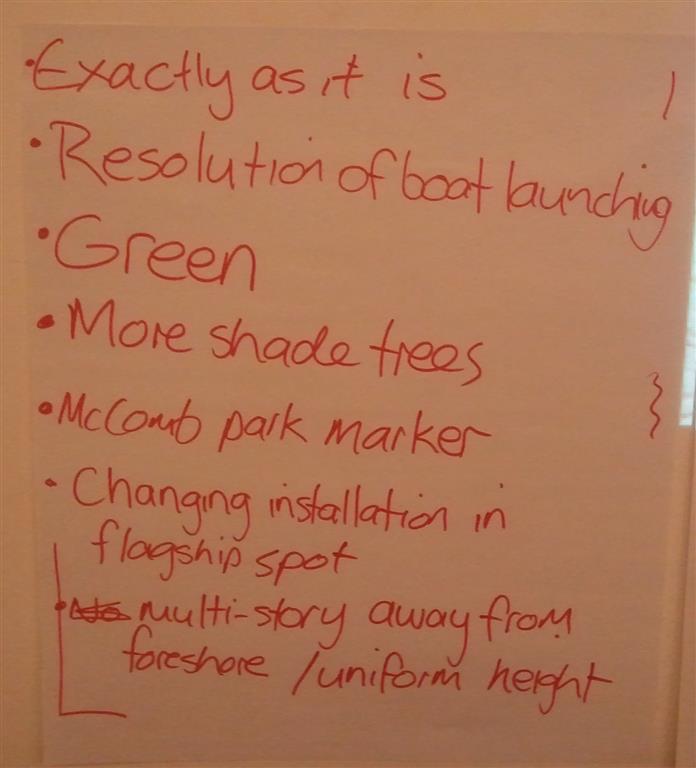 • Exactly as it is
• Resolution of boat launching
• Green
• More shade trees
• McComb park marker
• Changing installation in
flagship spot
• No multi-story away from
foreshore / uniform height